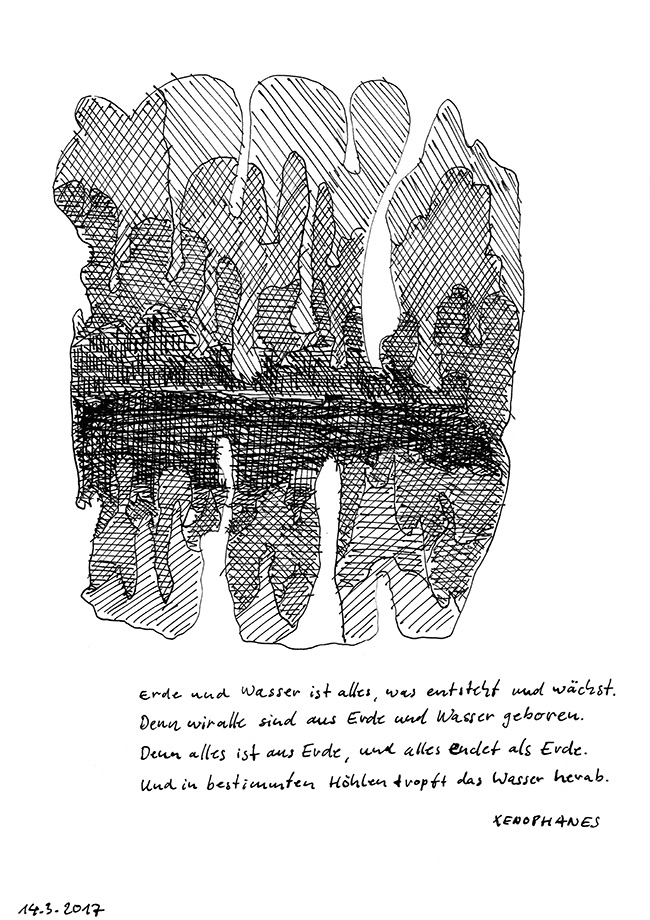 Erde und Wasser ist alles, was entsteht und wächst.
Denn wir alle sind aus Erde und Wasser geboren.
Denn alles ist aus Erde, und alles endet als Erde.
Und in bestimmten Höhlen tropft das Wasser herab.
XENOPHANES
14.3.2017